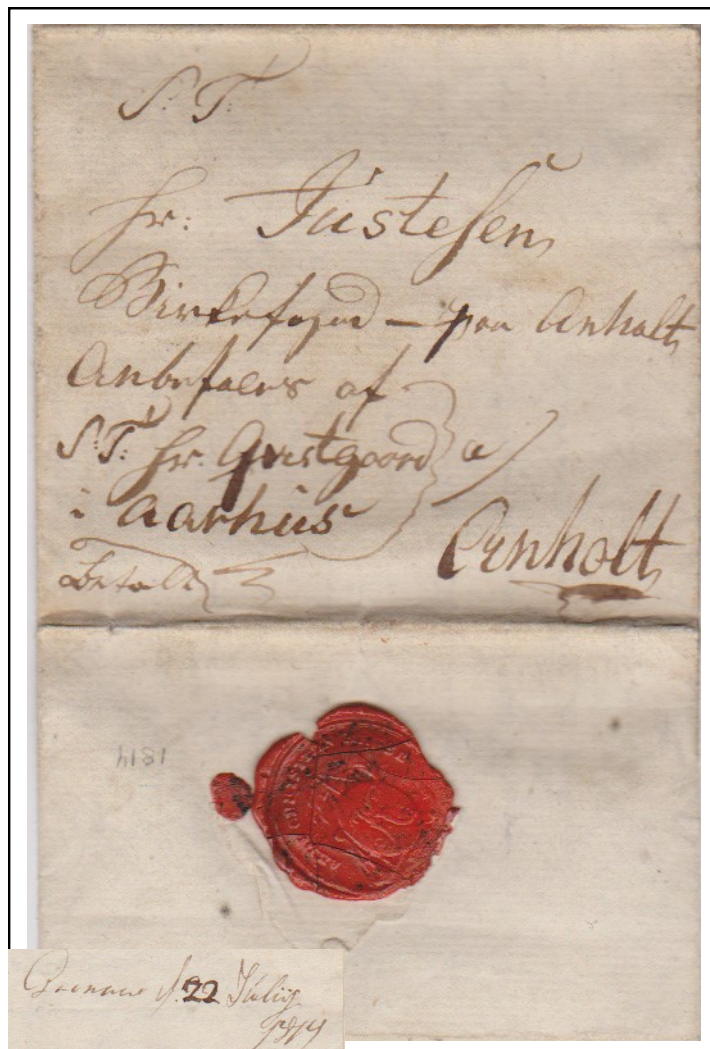 S. T.
Hr: Justesen
Birkefoged – paa Anholt
Anbefales af
S. T. Hr. Qvistgaard a/
i Aarhüs
Betalt
Anholt
1814
d. 22 Julÿ
1814